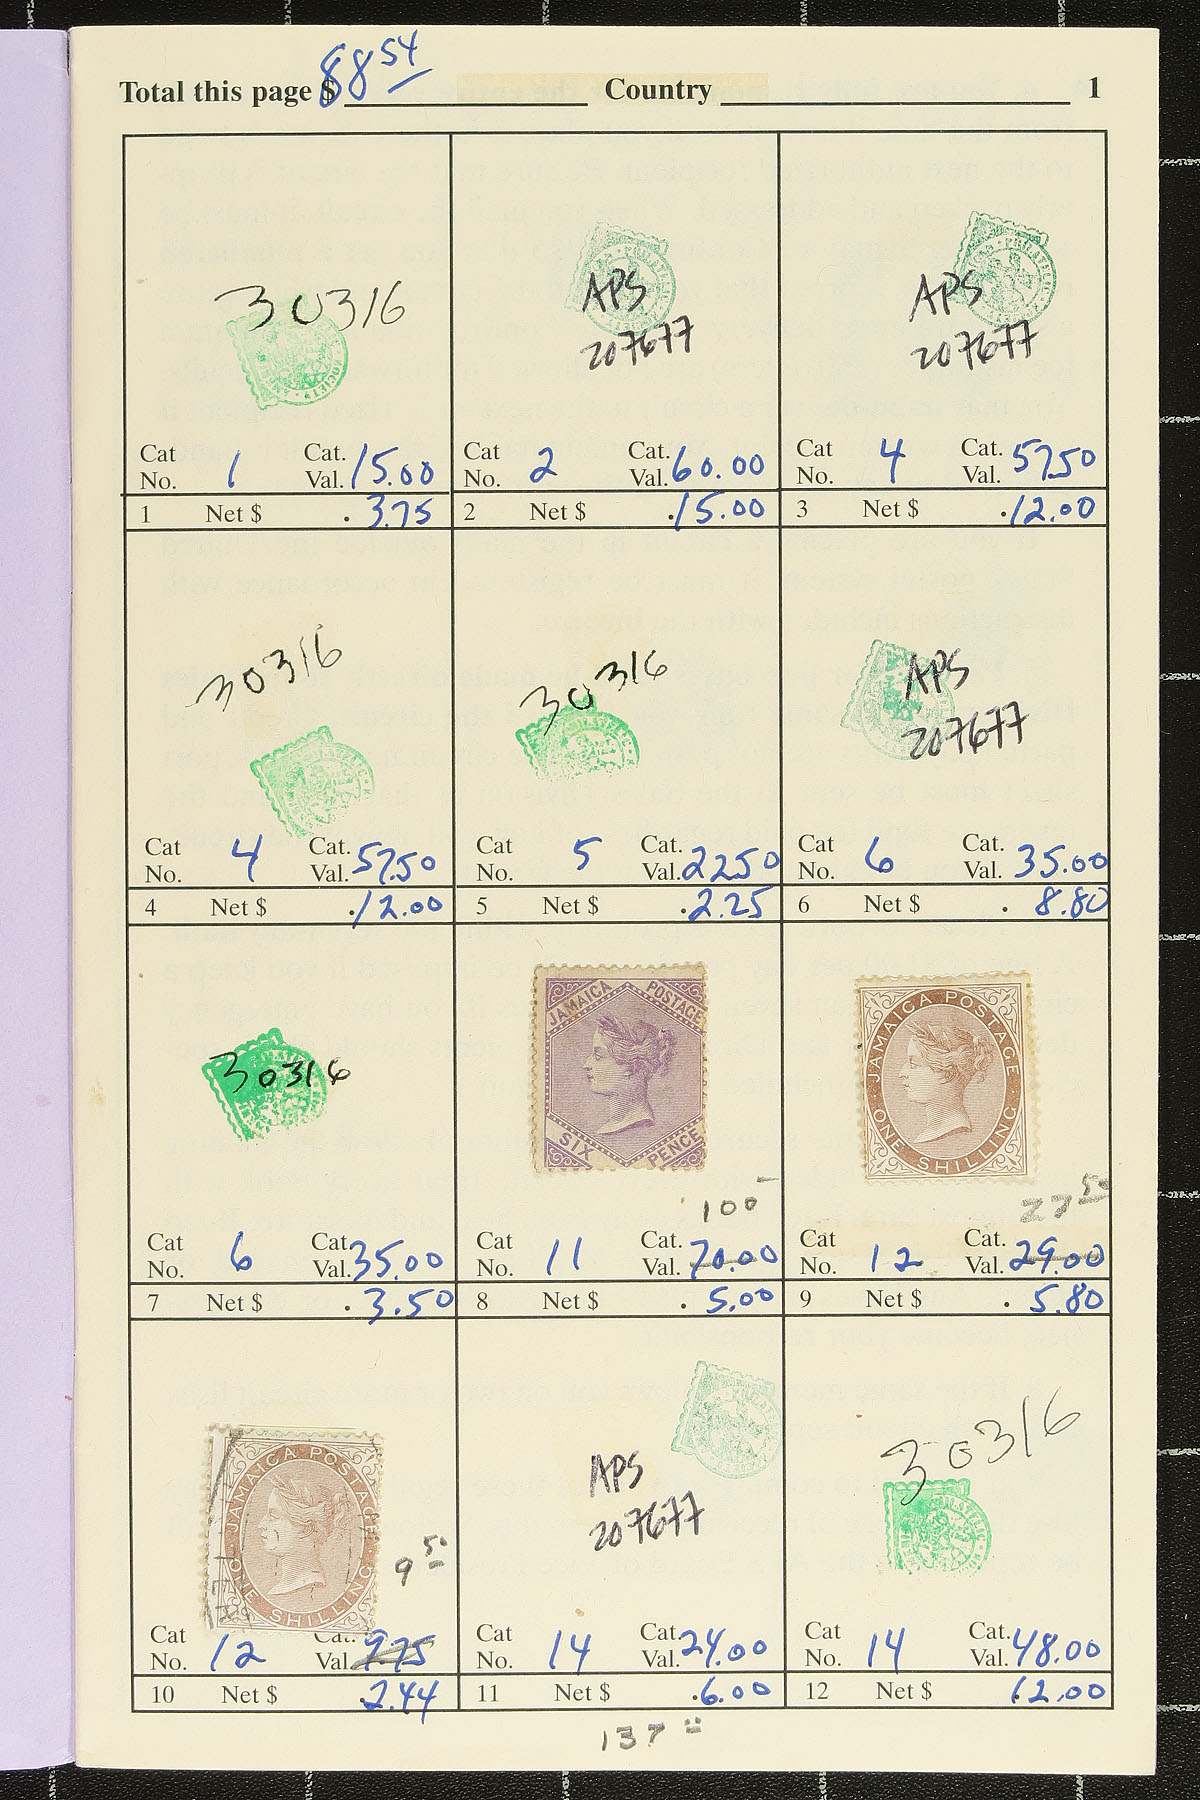 Total this page $ 88 54 Country 1
30316
Cat No. 1 Cat. Val. 15.00
1 Net $ . 3.75
APS
207677
Cat No. 2 Cat. Val. 60.00
2 Net $ .15.00
APS
207677
Cat No. 4 Cat. Val. 57.50
3 Net $ .12.00
30316
Cat No. 4 Cat. Val. 57.50
4 Net $ .12.00
30316
Cat No. 5 Cat. Val. 22.50
5 Net $ .2.25
APS
207677
Cat No. 6 Cat. Val. 35.00
6 Net $ . 8.80
30316
Cat No. 6 Cat. Val. 35.00
7 Net $ . 3.50
JAMAICA POSTAGE
SIX PENCE
100-
Cat No. 11 Cat. Val. 70.00
8 Net $ . 5.00
JAMAICA POSTAGE
ONE SHILLING
27 50
Cat No. 12 Cat. Val. 29.00
9 Net $ . 5.80
JAMAICA POSTAGE
ONE SHILLING
9 50
Cat No. 12 Cat. Val. 9.75
10 Net $ .2.44
APS
207677
Cat No. 14 Cat. Val. 24.00
11 Net $ .6.00
30316
Cat No. 14 Cat. Val. 48.00
12 Net $ 12.00
137